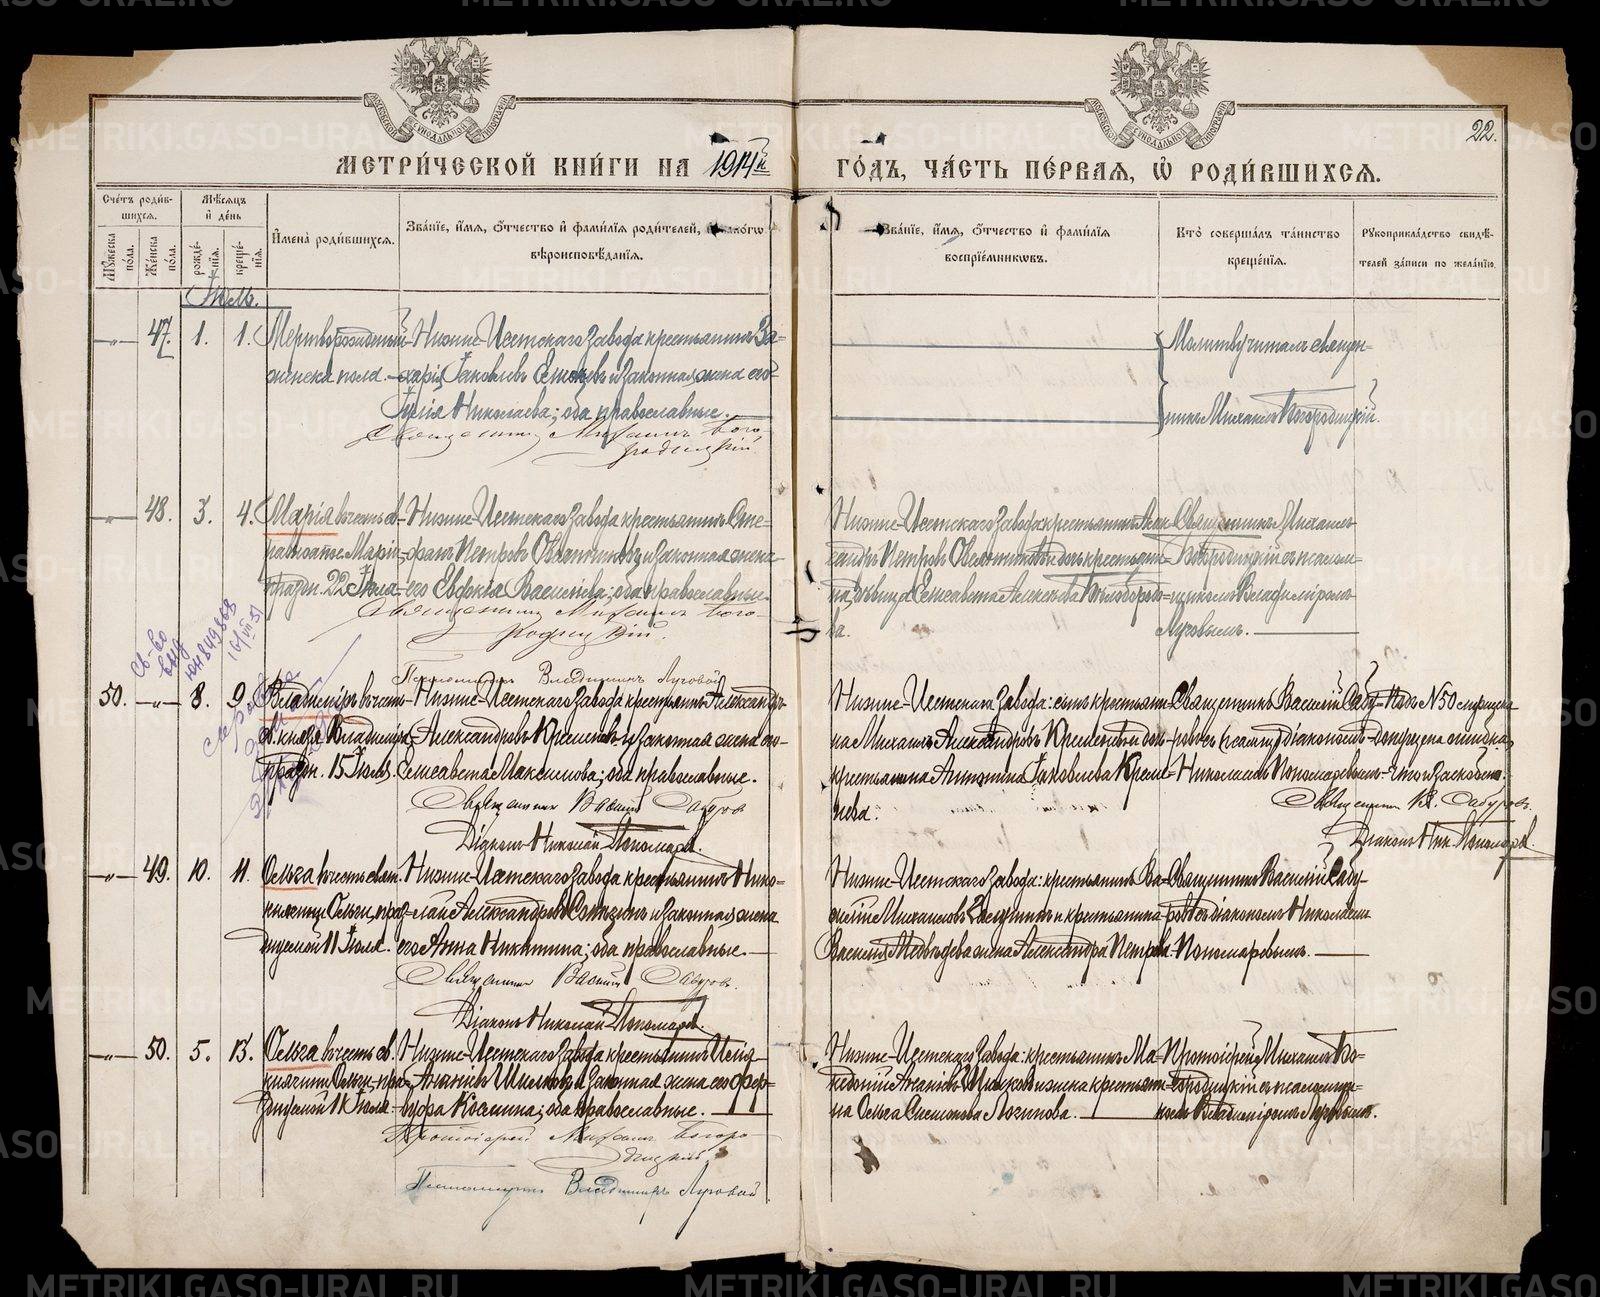 22.
МЕТРИ́ЧЕСКОЙ КНИ́ГИ НА 1914й ГО́ДЪ, ЧА́СТЬ ПЕ́РВАЯ, Ѿ РОДИ́ВШИХСЯ.
Сче́тъ роди́в-
шихся.
Му́жеска по́ла.
Же́нска по́ла.
Мѣ́сяцъ и де́нь
рожде́-
нїя.
креще́-
нїя.
Имена̀ роди́вшихся.
Зва́нїе, и́мя, о́тчество и фами́лїя роди́телей, и како́гѡ
вѣроисповѣ́данїя.
Зва́нїе, и́мя, о́тчество и фами́лїя
воспрїе́мникѡвъ.
Кто̀ соверша́лъ та́инство
креще́нїя.
Рꙋкоприкла́дство свидѣ́-
телей за́писи по жела́нїю.
Іюль.
-„- 47. 1. 1. Мертворожденный Нижне-Исетскаго завода крестьянинъ За-
женска пола. харій Іаковлевъ и законная жена его
Іулія Николаева; оба православные.
Священникъ Михаилъ Бого-
родицкій.
Молитву читалъ священ-
никъ Михаилъ Богородицкій.
-„- 48. 3. 4. Марія въ честь св. Нижне-Исетскаго завода крестьянинъ Сте-
равноапос. Маріи, фанъ Петровъ Овчинниковъ и законная жена
праздн. 22 Іюля его Евдокія Васильева; оба православные.
Священникъ Михаилъ Бого-
родицкій.
Псаломщикъ Владиміръ Луговой
Нижне-Исетскаго завода крестьянинъ Алек-
сандръ Петровъ Овчинниковъ и дочь крестьяни-
на, дѣвица Елисавета Алексѣева
ва.
Священникъ Михаилъ
Богородицкій съ псалом-
щикомъ Владиміромъ
Луговымъ.
50. -„- 8. 9. Владиміръ въ честь Нижне-Исетскаго завода крестьянинъ Александръ
св. князя Владиміра, Александровъ Кремлевъ и законная жена его
праздн. 15 Іюля. Елисавета Максимова; оба православные.
Священникъ Василій Сабуровъ
Діаконъ Николай Пономаревъ.
Нижне-Исетскаго завода: сынъ крестьяни-
на Михаилъ Александровъ и дочь
крестьянина Антонина Іаковлева Крем-
лева.
Священникъ Василій Сабу-
ровъ съ діакономъ
Николаемъ Пономаревымъ.
Надъ №50
допущена ошибка,
Священникъ В. Сабуровъ.
Діаконъ Ник. Пономаревъ.
-„- 49. 10. 11. Ольга въ честь свят. Нижне-Исетскаго завода крестьянинъ Нико-
княгини Ольги, праз- лай Александровъ и законная жена
днуемой 11 Іюля. его Анна Никитина; оба православные.
Священникъ Василій Сабуровъ.
Діаконъ Николай Пономаревъ.
Нижне-Исетскаго завода: крестьянинъ Ва-
силій Михаиловъ и крестьянина
Василія Медвѣдева жена Александра Петрова.
Священникъ Василій Сабу-
ровъ съ діакономъ Николаемъ
Пономаревымъ.
-„- 50. 5. 13. Ольга въ честь св. Нижне-Исетскаго завода крестьянинъ Илія
княгини Ольги, пра- Ананіевъ и законная жена его
зднуемой 11 Іюля Козьмина; оба православные.
Протоіерей Михаилъ Богоро-
дицкій.
Псаломщикъ Владиміръ Луговой
Нижне-Исетскаго завода: крестьянинъ Ма-
кедоній Ананіевъ и жена крестьяни-
на Ольга Логинова.
Протоіерей Михаилъ Бо-
городицкій съ псаломщи-
комъ Владиміромъ Луговымъ.
METRIKI.GASO-URAL.RU